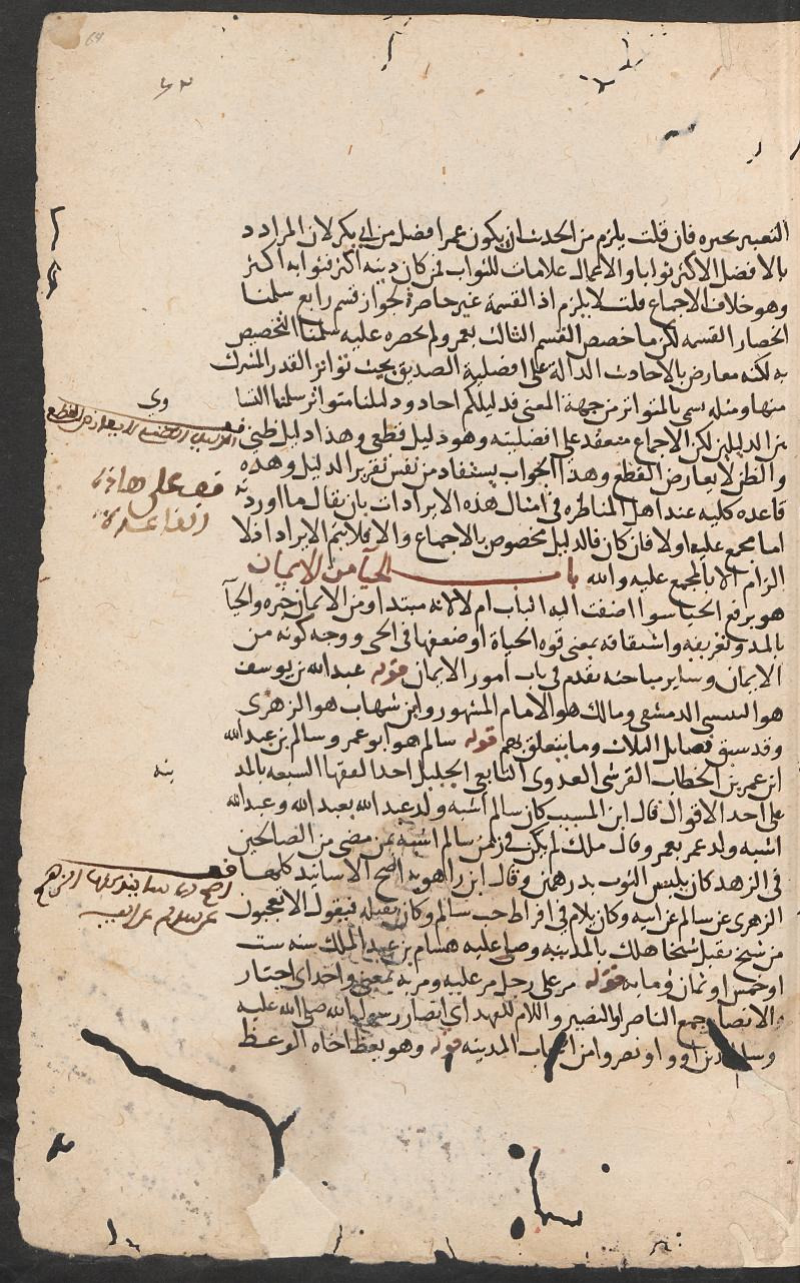 التعبير بجره فان قلت يلزم من الحديث ان يكون عمر افضل من ابي بكر لان المراد
بالافضل الاكثر ثوابا والاعمال علامات للثواب فمن كان دينه اكثر فثوابه اكثر
وهو خلاف الاجماع قلت لا يلزم اذ القسمة غير حاصرة لجواز قسم رابع سلمنا
انحصار القسمه لكن ما خصص القسم الثالث بعمر ولم يحصره عليه سلمنا التخصيص
به لكنه معارض بالاحاديث الدالة على افضلية الصديق بحيث تواتر القدر المشترك
منها ومثله يسمى بالمتواتر من جهة المعنى فدليلكم احاد ودليلنا متواتر سلمنا التسا
وي
بين الدليلين لكن الاجماع منعقد على افضليته وهو دليل قطعي وهذا دليل ظني
والظن لا يعارض القطع وهذا الجواب يستفاد من نفس تقرير الدليل وهذه
قاعده كليه عند اهل المناظره في امثال هذه الايرادات بان يقال ما اوردته
قف على هاذه
القاعدة
اما مجمع عليه اولا فان كان فالدليل مخصوص بالاجماع والا فلا يتم الايراد اذ لا
الزام الا بالمجمع عليه والله باب الحيا من الايمان
هو برفع الحيا سوا اضفت اليه الباب ام لا لانه مبتدا ومن الايمان خبره والحيا
بالمد وتعريفه واشتقاقه بمعنى قوه الحياة او ضعفها في الحي ووجه كونه من
الايمان وساير مباحثه تقدم في باب امور الايمان قوله عبد الله بن يوسف
هو التنيسي الدمشقي ومالك هو الامام المشهور وابن شهاب هو الزهري
وقد سبق فضايل الثلاث وما يتعلق بهم قوله سالم هو ابو عمر وسالم بن عبد الله
ابن عمر بن الخطاب القرشي العدوي التابعي الجليل احد الفقها السبعه بالمد
ينه
على احد الاقوال قال ابن المسيب كان سالم اشبه ولد عبد الله بعبد الله وعبد الله
اشبه ولد عمر بعمر وقال ملك لم يكن في زمن سالم اشبه بمن مضى من الصالحين
في الزهد كان يلبس الثوب بدرهمين وقال ابن راهويه اصح الاسانيد كلها
الزهري عن سالم عن ابيه وكان يلام في افراط حب سالم وكان يقبله فيقول الا تعجبون
من شيخ يقبل شيخا هلك بالمدينه وصلى عليه هشام بن عبد الملك سنه ست
او خمس او ثمان ومايه قوله مر على رجل مر عليه ومر به بمعنى واحد اي اجتاز
والانصار جمع الناصر او النصير واللام للعهد اي انصار رسول الله صلى الله عليه
وسلم الذين اووا ونصروا من المدينه قوله وهو يعظ اخاه الوعظ